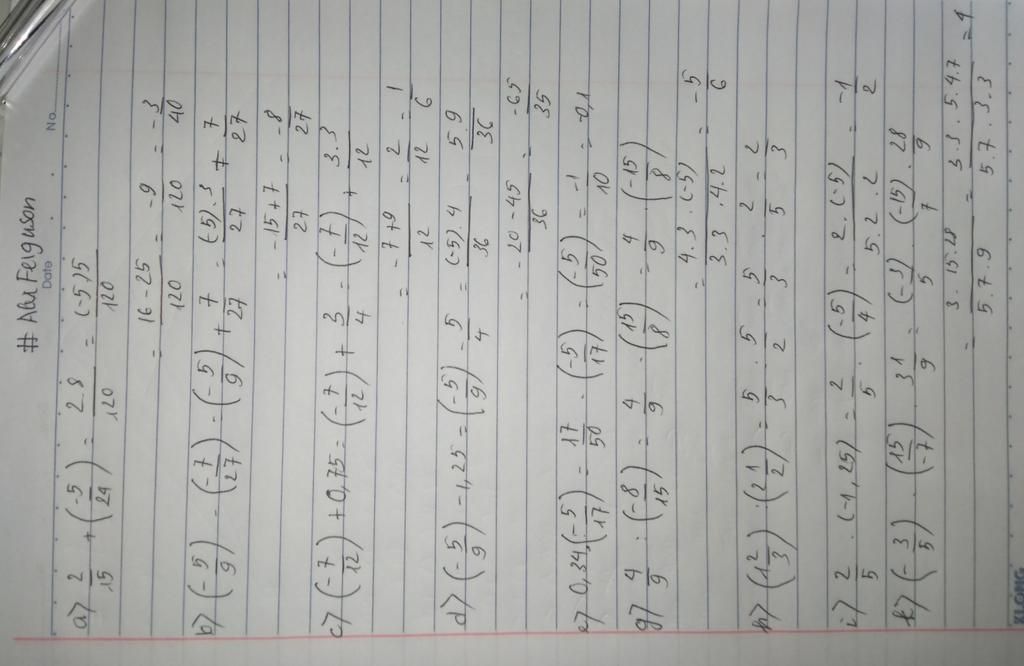 # AluFelguson
Date No.
a) 2/15 + (-5/24) = 2.8/120 = (-5)5/120
= 16-25/120 = -9/120 = -3/40
b) (-5/9) - (-7/27) = (-5/9) + 7/27 = (-5).3/27 + 7/27
= -15+7/27 = -8/27
c) (-7/12) + 0,75 = (-7/12) + 3/4 = (-7/12) + 3.3/12
= -7+9/12 = 2/12 = 1/6
d) (-5/9) - 1,25 = (-5/9) - 5/4 = (-5).4/36 - 5.9/36
= -20-45/36 = -65/35
e) 0,34.(-5/17) = 17/50 . (-5/17) = (-5/50) = -1/10 = -0,1
g) 4/9 : (-8/15) = 4/9 : (15/8) = 4/9 . (-15/8)
= 4.3.(-5)/3.3.4.2 = -5/6
h) (1 2/3) : (2 1/2) = 5/3 : 5/2 = 5/3 . 2/5 = 2/3
i) 2/5 . (-1,25) = 2/5 . (-5/4) = 2.(-5)/5.2.2 = -1/2
k) (-3/5) . (15/-7) . 3 1/9 = (-3)/5 . (-15)/7 . 28/9
= 3.15.28/5.7.9 = 3.3.5.4.7/5.7.3.3 = 4
KLONG